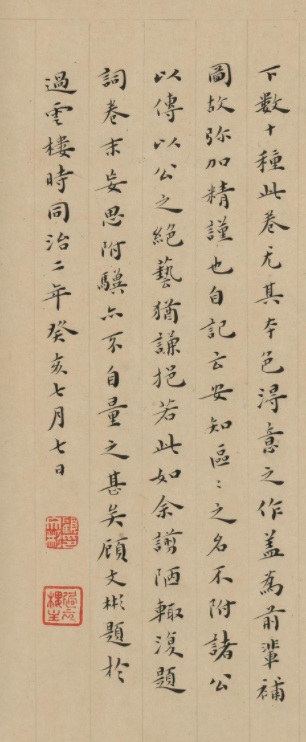 下數十種此卷尤其本色得意之作蓋為前輩補
圖故弥加精謹也自記云安知區〻之名不附諸公
以傳以公之絕藝猶謙挹若此如余谫陋輙復題
詞卷末妄思附驥亦不自量之甚矣顧文彬題於
過雲樓時同治二年癸亥七月七日